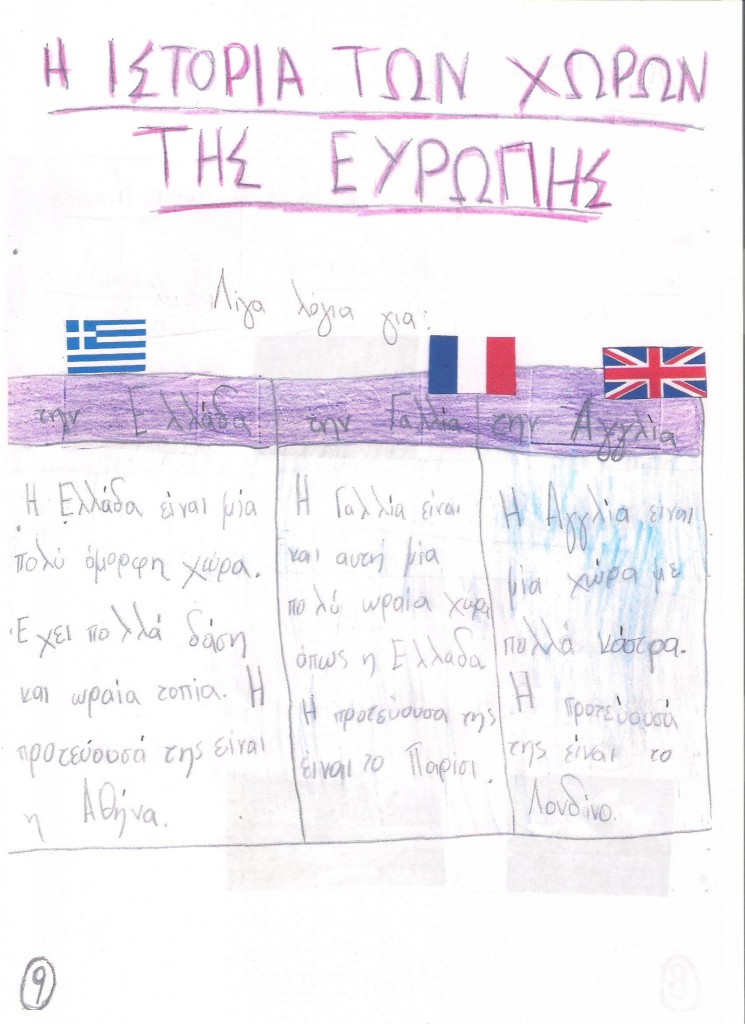 Η ΙΣΤΟΡΙΑ ΤΩΝ ΧΩΡΩΝ
ΤΗΣ ΕΥΡΩΠΗΣ
Λίγα λόγια για:
την Ελλάδα
Η Ελλάδα είναι μία
πολύ όμορφη χώρα.
Έχει πολλά δάση
και ωραία τοπία. Η
προτεύουσά της είναι
η Αθήνα.
την Γαλλία
Η Γαλλία είναι
και αυτή μία
πολύ ωραία χώρα
όπως η Ελλάδα
Η προτεύουσα της
είναι το Παρίσι.
την Αγγλία
Η Αγγλία είναι
μία χώρα με
πολλά κάστρα.
Η προτεύουσά
της είναι το
Λονδίνο.
9
8